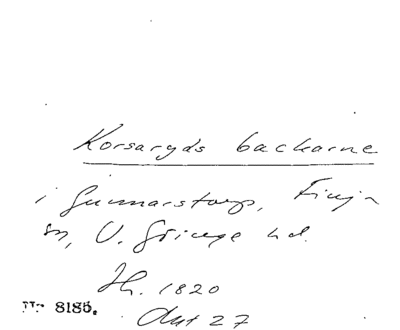 Korsaryds backarne
i Gunnarstorp, Finja
sn, V. Göinge hd.
Jh. 1820
Akt 27
8185.